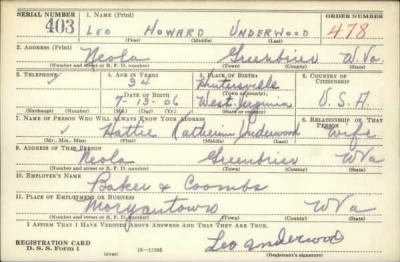 SERIAL NUMBER 1. NAME (Print) ORDER NUMBER
403 LEO HOWARD UNDERWOOD 478
(First) (Middle) (Last)
2. ADDRESS (Print)
Neola Greenbrier W.Va
(Number and street or R. F. D. number) (Town) (County) (State)
3. TELEPHONE 4. AGE IN YEARS 5. PLACE OF BIRTH 6. COUNTRY OF CITIZENSHIP
34 Huntersville
(Town or county)
DATE OF BIRTH
7-13-06 West Virginia U.S.A.
(Exchange) (Number) (Mo.) (Day) (Yr.) (State or country)
7. NAME OF PERSON WHO WILL ALWAYS KNOW YOUR ADDRESS 8. RELATIONSHIP OF THAT PERSON
✓ Hattie Katherine Underwood wife
(Mr., Mrs., Miss) (First) (Middle) (Last)
9. ADDRESS OF THAT PERSON
Neola Greenbrier WVa
(Number and street or R. F. D. number) (Town) (County) (State)
10. EMPLOYER'S NAME
Baker & Coombs
11. PLACE OF EMPLOYMENT OR BUSINESS
Morgantown WVa
(Number and street or R. F. D. number) (Town) (County) (State)
I AFFIRM THAT I HAVE VERIFIED ABOVE ANSWERS AND THAT THEY ARE TRUE.
REGISTRATION CARD
D. S. S. Form 1 (over) Leo Underwood
(Registrant's signature)